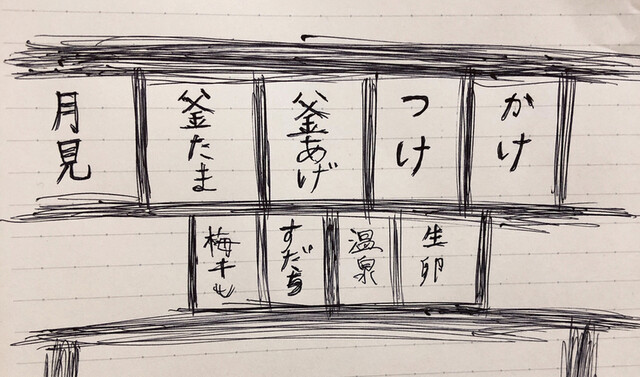 かけ
つけ
釜あげ
釜たま
月見
生卵
温泉
すだち
梅干し